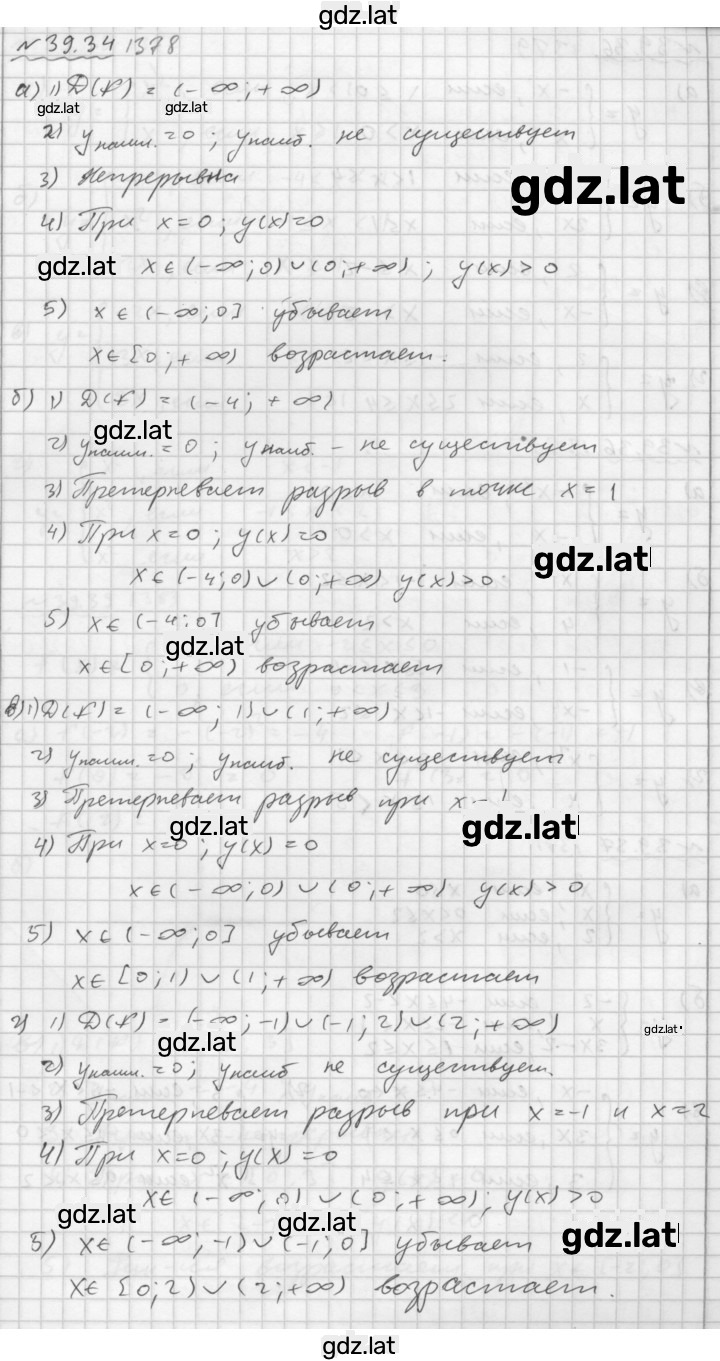 gdz.lat
№39.34 1378
а) 1) D(f) = (-∞; +∞)
gdz.lat gdz.lat
2) yнаим. =0; yнаиб. не существует
3) Непрерывна
gdz.lat
4) При x=0; y(x)=0
gdz.lat x∈(-∞;0)∪(0;+∞); y(x)>0
5) x∈(-∞;0] убывает
x∈[0;+∞) возрастает.
б) 1) D(f) = (-4; +∞)
gdz.lat
2) yнаим. = 0; yнаиб. - не существует
3) Претерпевает разрыв в точке x=1
4) При x=0; y(x)=0
gdz.lat
x∈(-4;0)∪(0;+∞) y(x)>0
5) x∈(-4;0] убывает
gdz.lat
x∈[0;+∞) возрастает
в) 1) D(f) = (-∞; 1)∪(1;+∞)
2) yнаим. =0; yнаиб. не существует
3) Претерпевает разрыв при x-1
gdz.lat gdz.lat
4) При x=0; y(x)=0
x∈(-∞;0)∪(0;+∞) y(x)>0
5) x∈(-∞;0] убывает
x∈[0;1)∪(1;+∞) возрастает
г) 1) D(f) = (-∞;-1)∪(-1;2)∪(2;+∞)
gdz.lat gdz.lat
2) yнаим. =0; yнаиб не существует.
3) Претерпевает разрыв при x=-1 и x=2
4) При x=0; y(x)=0
x∈(-∞;0)∪(0;+∞); y(x)>0
gdz.lat gdz.lat gdz.lat
5) x∈(-∞;-1)∪(-1;0] убывает
x∈[0;2)∪(2;+∞) возрастает.
gdz.lat